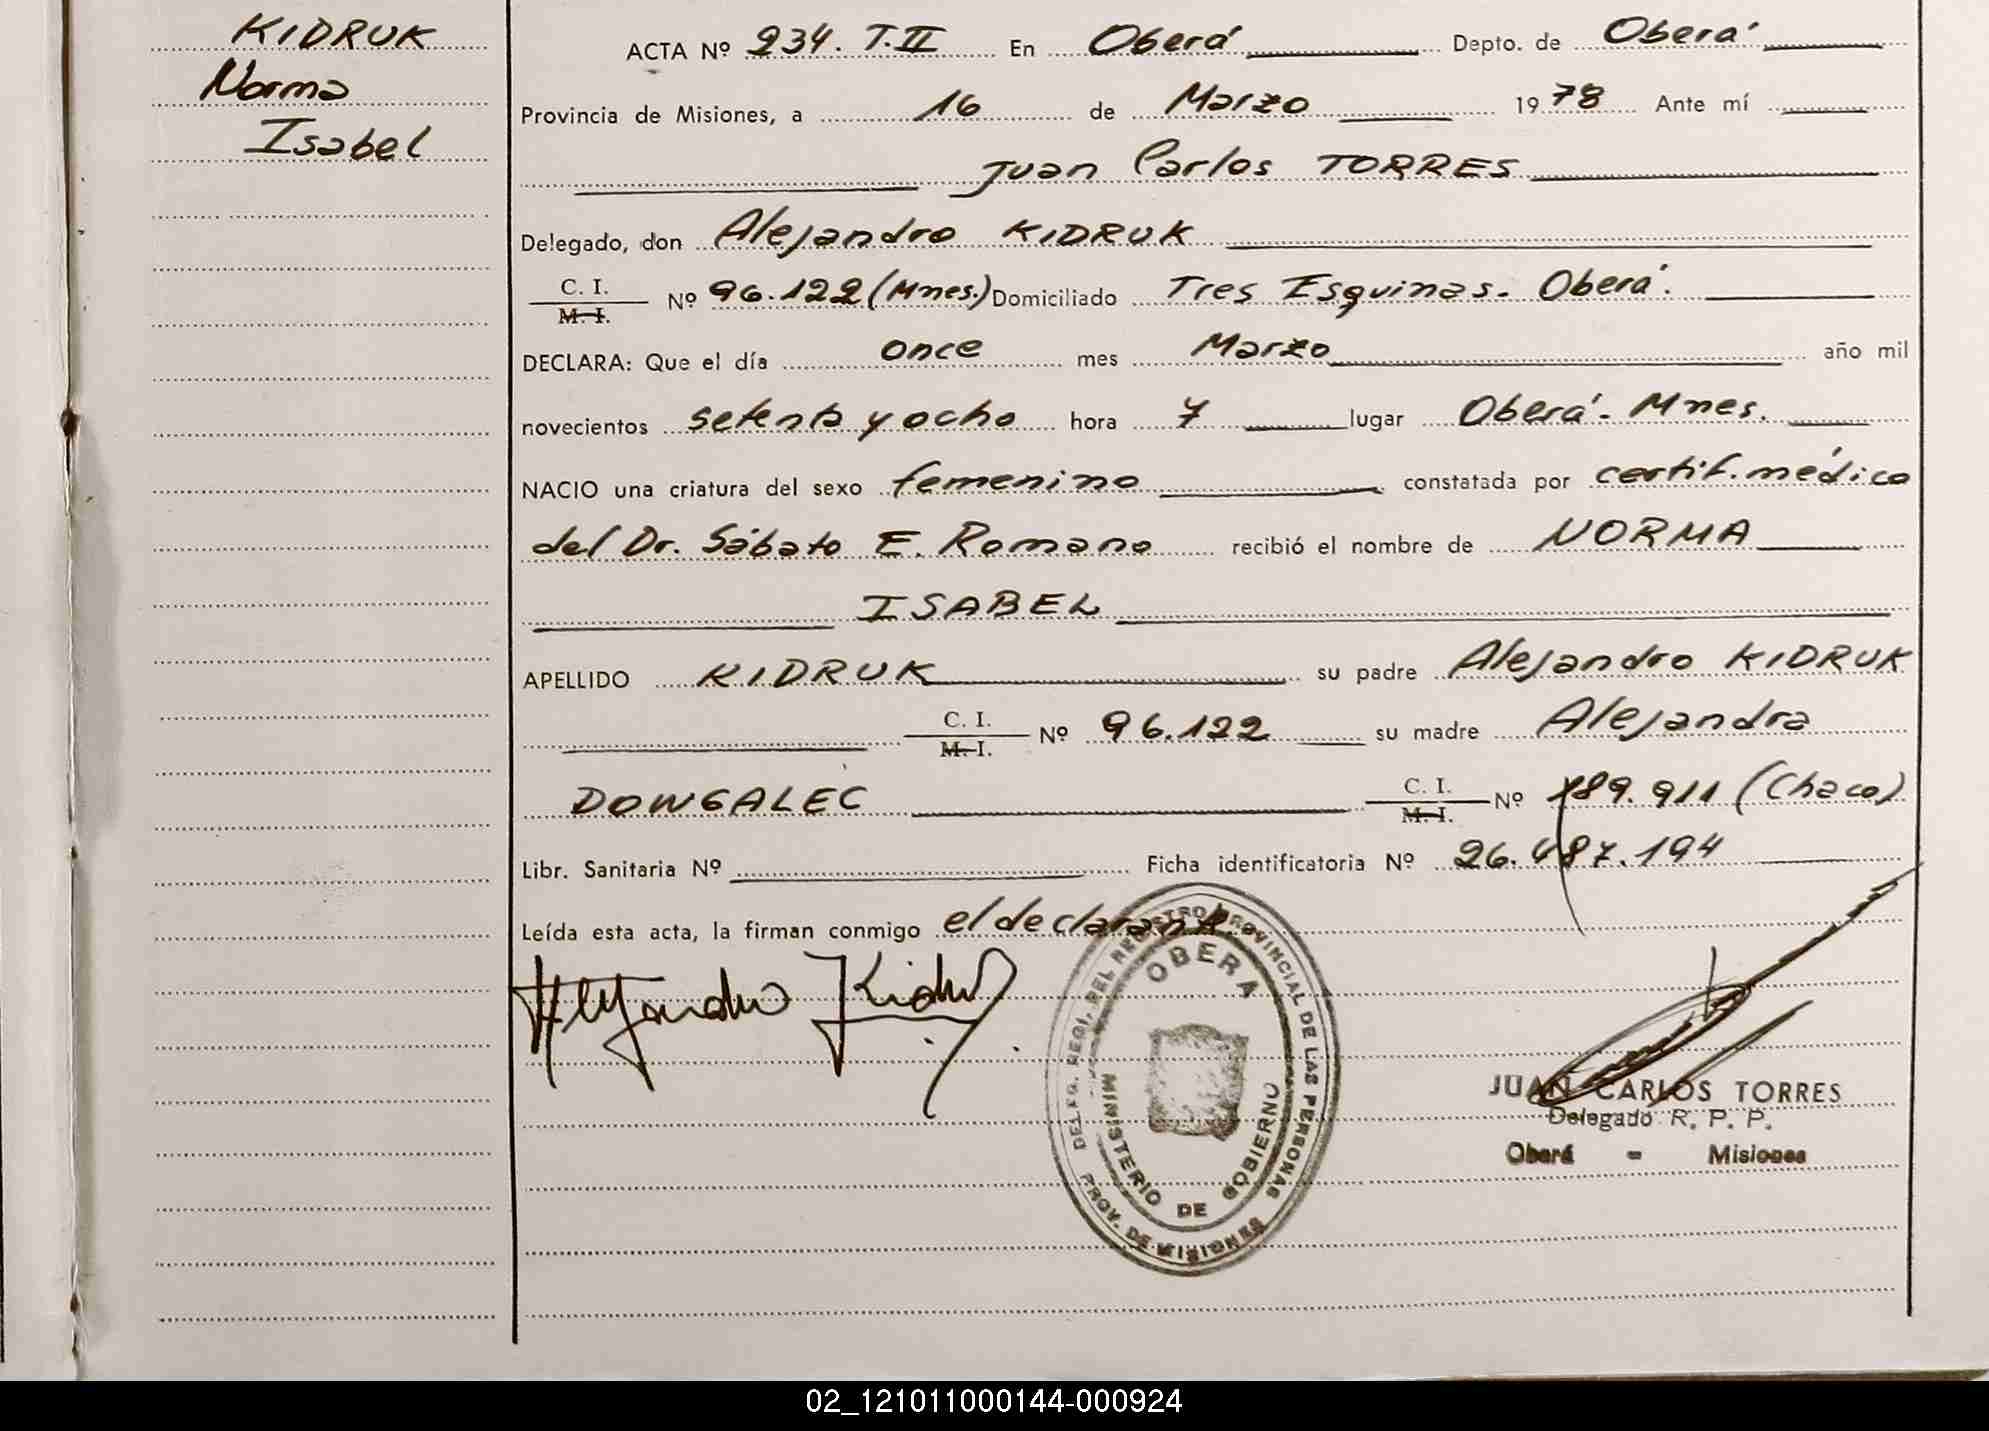 KIDRUK
Norma
Isabel
ACTA Nº 234. T.II En Oberá Depto. de Oberá
Provincia de Misiones, a 16 de Marzo 1978 Ante mí
Juan Carlos TORRES
Delegado, don Alejandro KIDRUK
C. I.
M. I. Nº 96.122 (Mnes.) Domiciliado Tres Esquinas. Oberá.
DECLARA: Que el día once mes Marzo año mil
novecientos setenta y ocho hora 7 lugar Oberá - Mnes.
NACIO una criatura del sexo femenino constatada por certif. médico
del Dr. Sábato E. Romano recibió el nombre de NORMA
ISABEL
APELLIDO KIDRUK su padre Alejandro KIDRUK
C. I.
M. I. Nº 96.122 su madre Alejandra
DOWGALEC C. I.
M. I. Nº 189.911 (Chaco)
Libr. Sanitaria Nº Ficha identificatoria Nº 26.487.194
Leída esta acta, la firman conmigo el declarante.
Alejandro Kidruk
DELEG. REGI. DEL REGISTRO PROVINCIAL DE LAS PERSONAS
OBERA
MINISTERIO DE GOBIERNO
PROV. DE MISIONES
JUAN CARLOS TORRES
Delegado R. P. P.
Oberá - Misiones
02_121011000144-000924